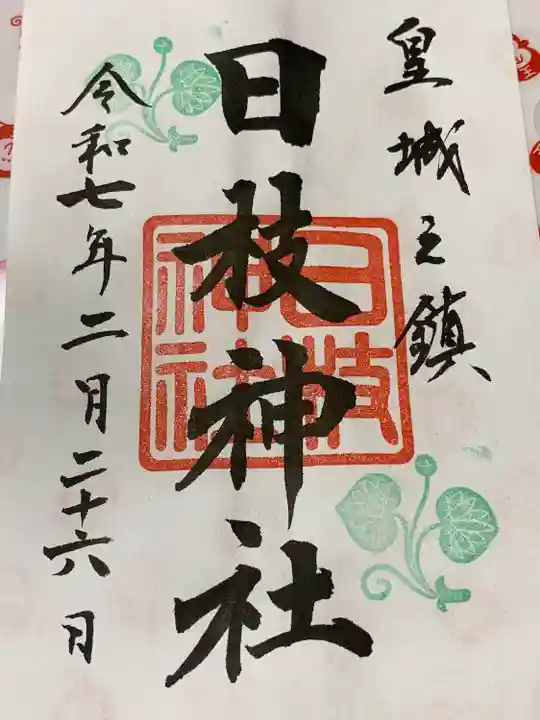 皇城之鎮
日枝神社
日枝神社
令和七年二月二十六日